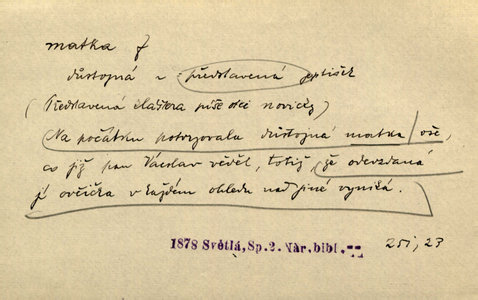 matka f
důstojná = představená jeptišek
(Představená kláštera píše otci novicky)
Na počátku potvrzovala důstojná matka vše,
co již pan Václav věděl, totiž že odevzdaná
jí ovčička v každém ohledu nad jiné vyniká.
1878 Světlá, Sp. 2. Nár. bibl.
251, 23